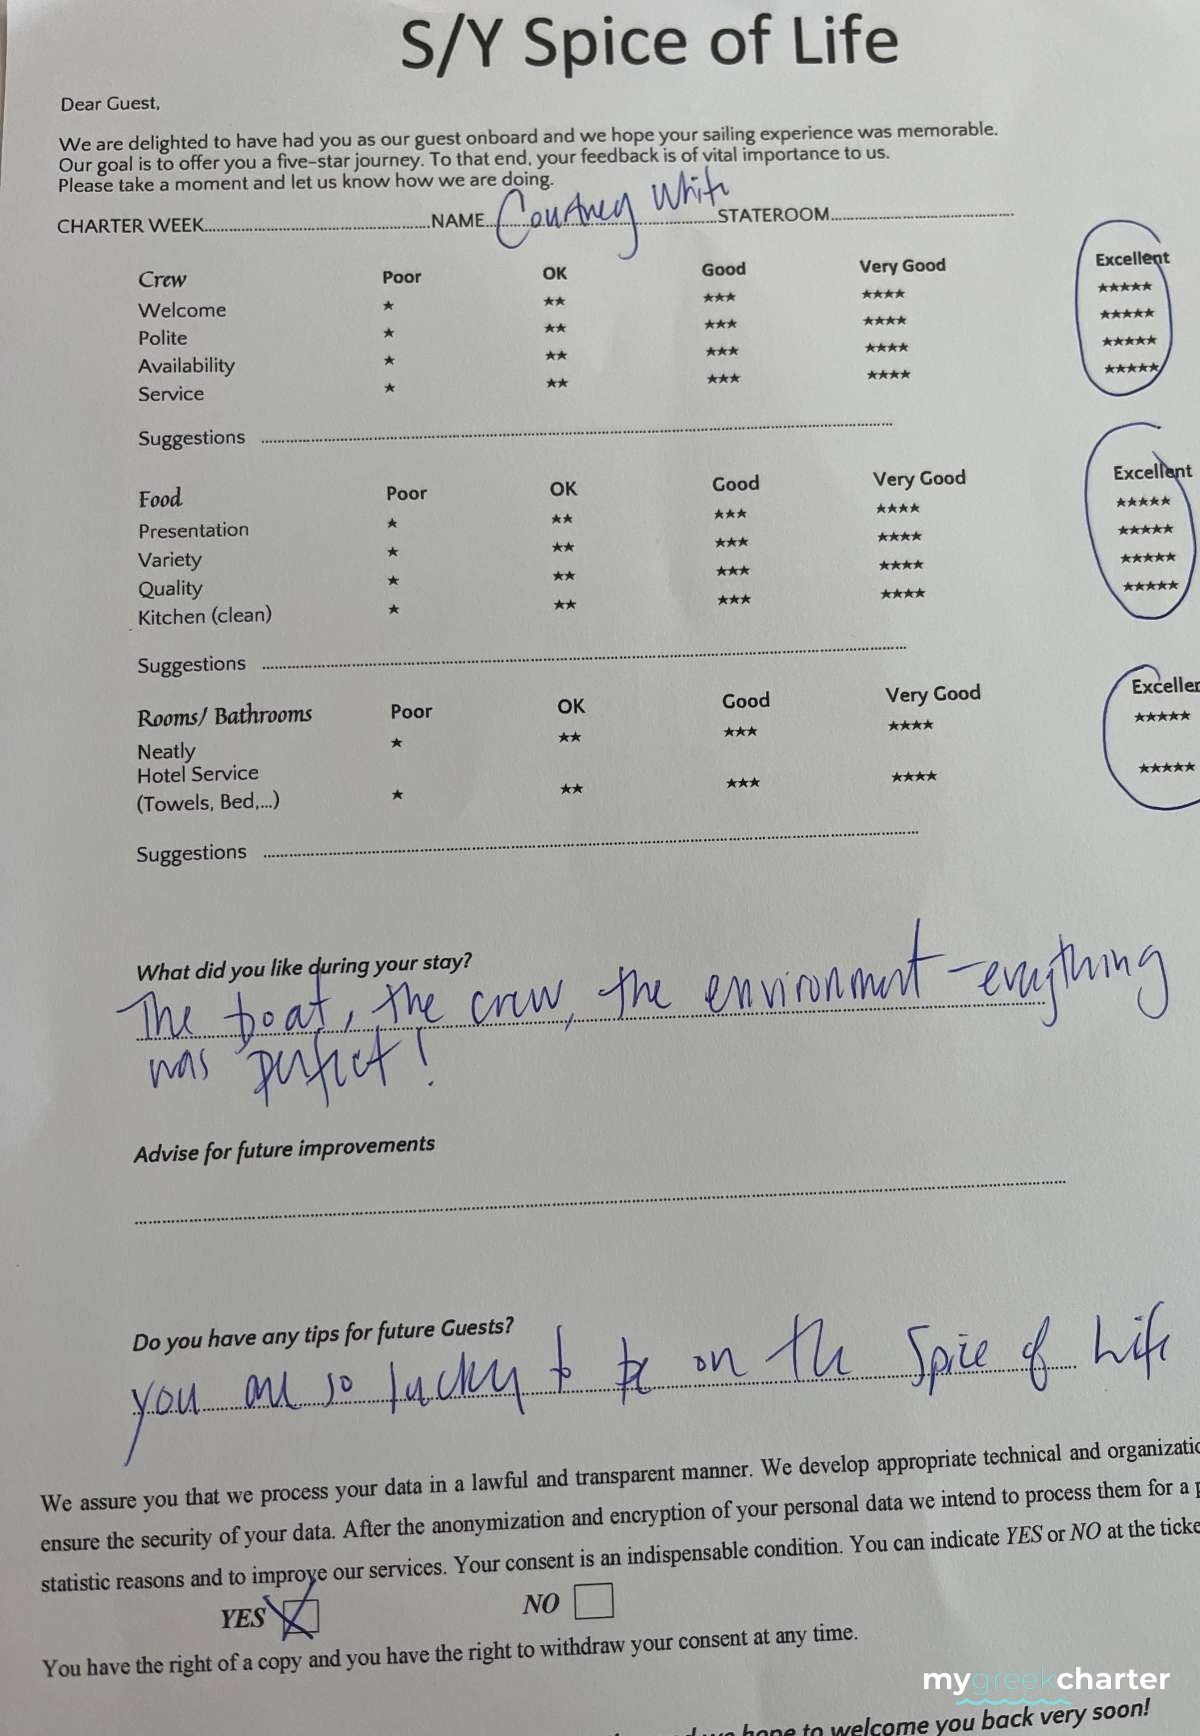 S/Y Spice of Life
Dear Guest,
We are delighted to have had you as our guest onboard and we hope your sailing experience was memorable.
Our goal is to offer you a five-star journey. To that end, your feedback is of vital importance to us.
Please take a moment and let us know how we are doing.
CHARTER WEEK........................NAME...Courtney White...STATEROOM........................
Crew Poor OK Good Very Good Excellent
Welcome ★ ★★ ★★★ ★★★★ ★★★★★
Polite ★ ★★ ★★★ ★★★★ ★★★★★
Availability ★ ★★ ★★★ ★★★★ ★★★★★
Service ★ ★★ ★★★ ★★★★ ★★★★★
Suggestions ........................
Food Poor OK Good Very Good Excellent
Presentation ★ ★★ ★★★ ★★★★ ★★★★★
Variety ★ ★★ ★★★ ★★★★ ★★★★★
Quality ★ ★★ ★★★ ★★★★ ★★★★★
Kitchen (clean) ★ ★★ ★★★ ★★★★ ★★★★★
Suggestions ........................
Rooms/ Bathrooms Poor OK Good Very Good Exceller
Neatly ★ ★★ ★★★ ★★★★ ★★★★★
Hotel Service
(Towels, Bed,...) ★ ★★ ★★★ ★★★★ ★★★★★
Suggestions ........................
What did you like during your stay?
The boat, the crew, the environment - everything
was perfect!
Advise for future improvements
Do you have any tips for future Guests?
you are so lucky to be on the Spice of Life
We assure you that we process your data in a lawful and transparent manner. We develop appropriate technical and organizatio
ensure the security of your data. After the anonymization and encryption of your personal data we intend to process them for a p
statistic reasons and to improve our services. Your consent is an indispensable condition. You can indicate YES or NO at the ticke
YES NO
You have the right of a copy and you have the right to withdraw your consent at any time.
mygreekcharter
hope to welcome you back very soon!